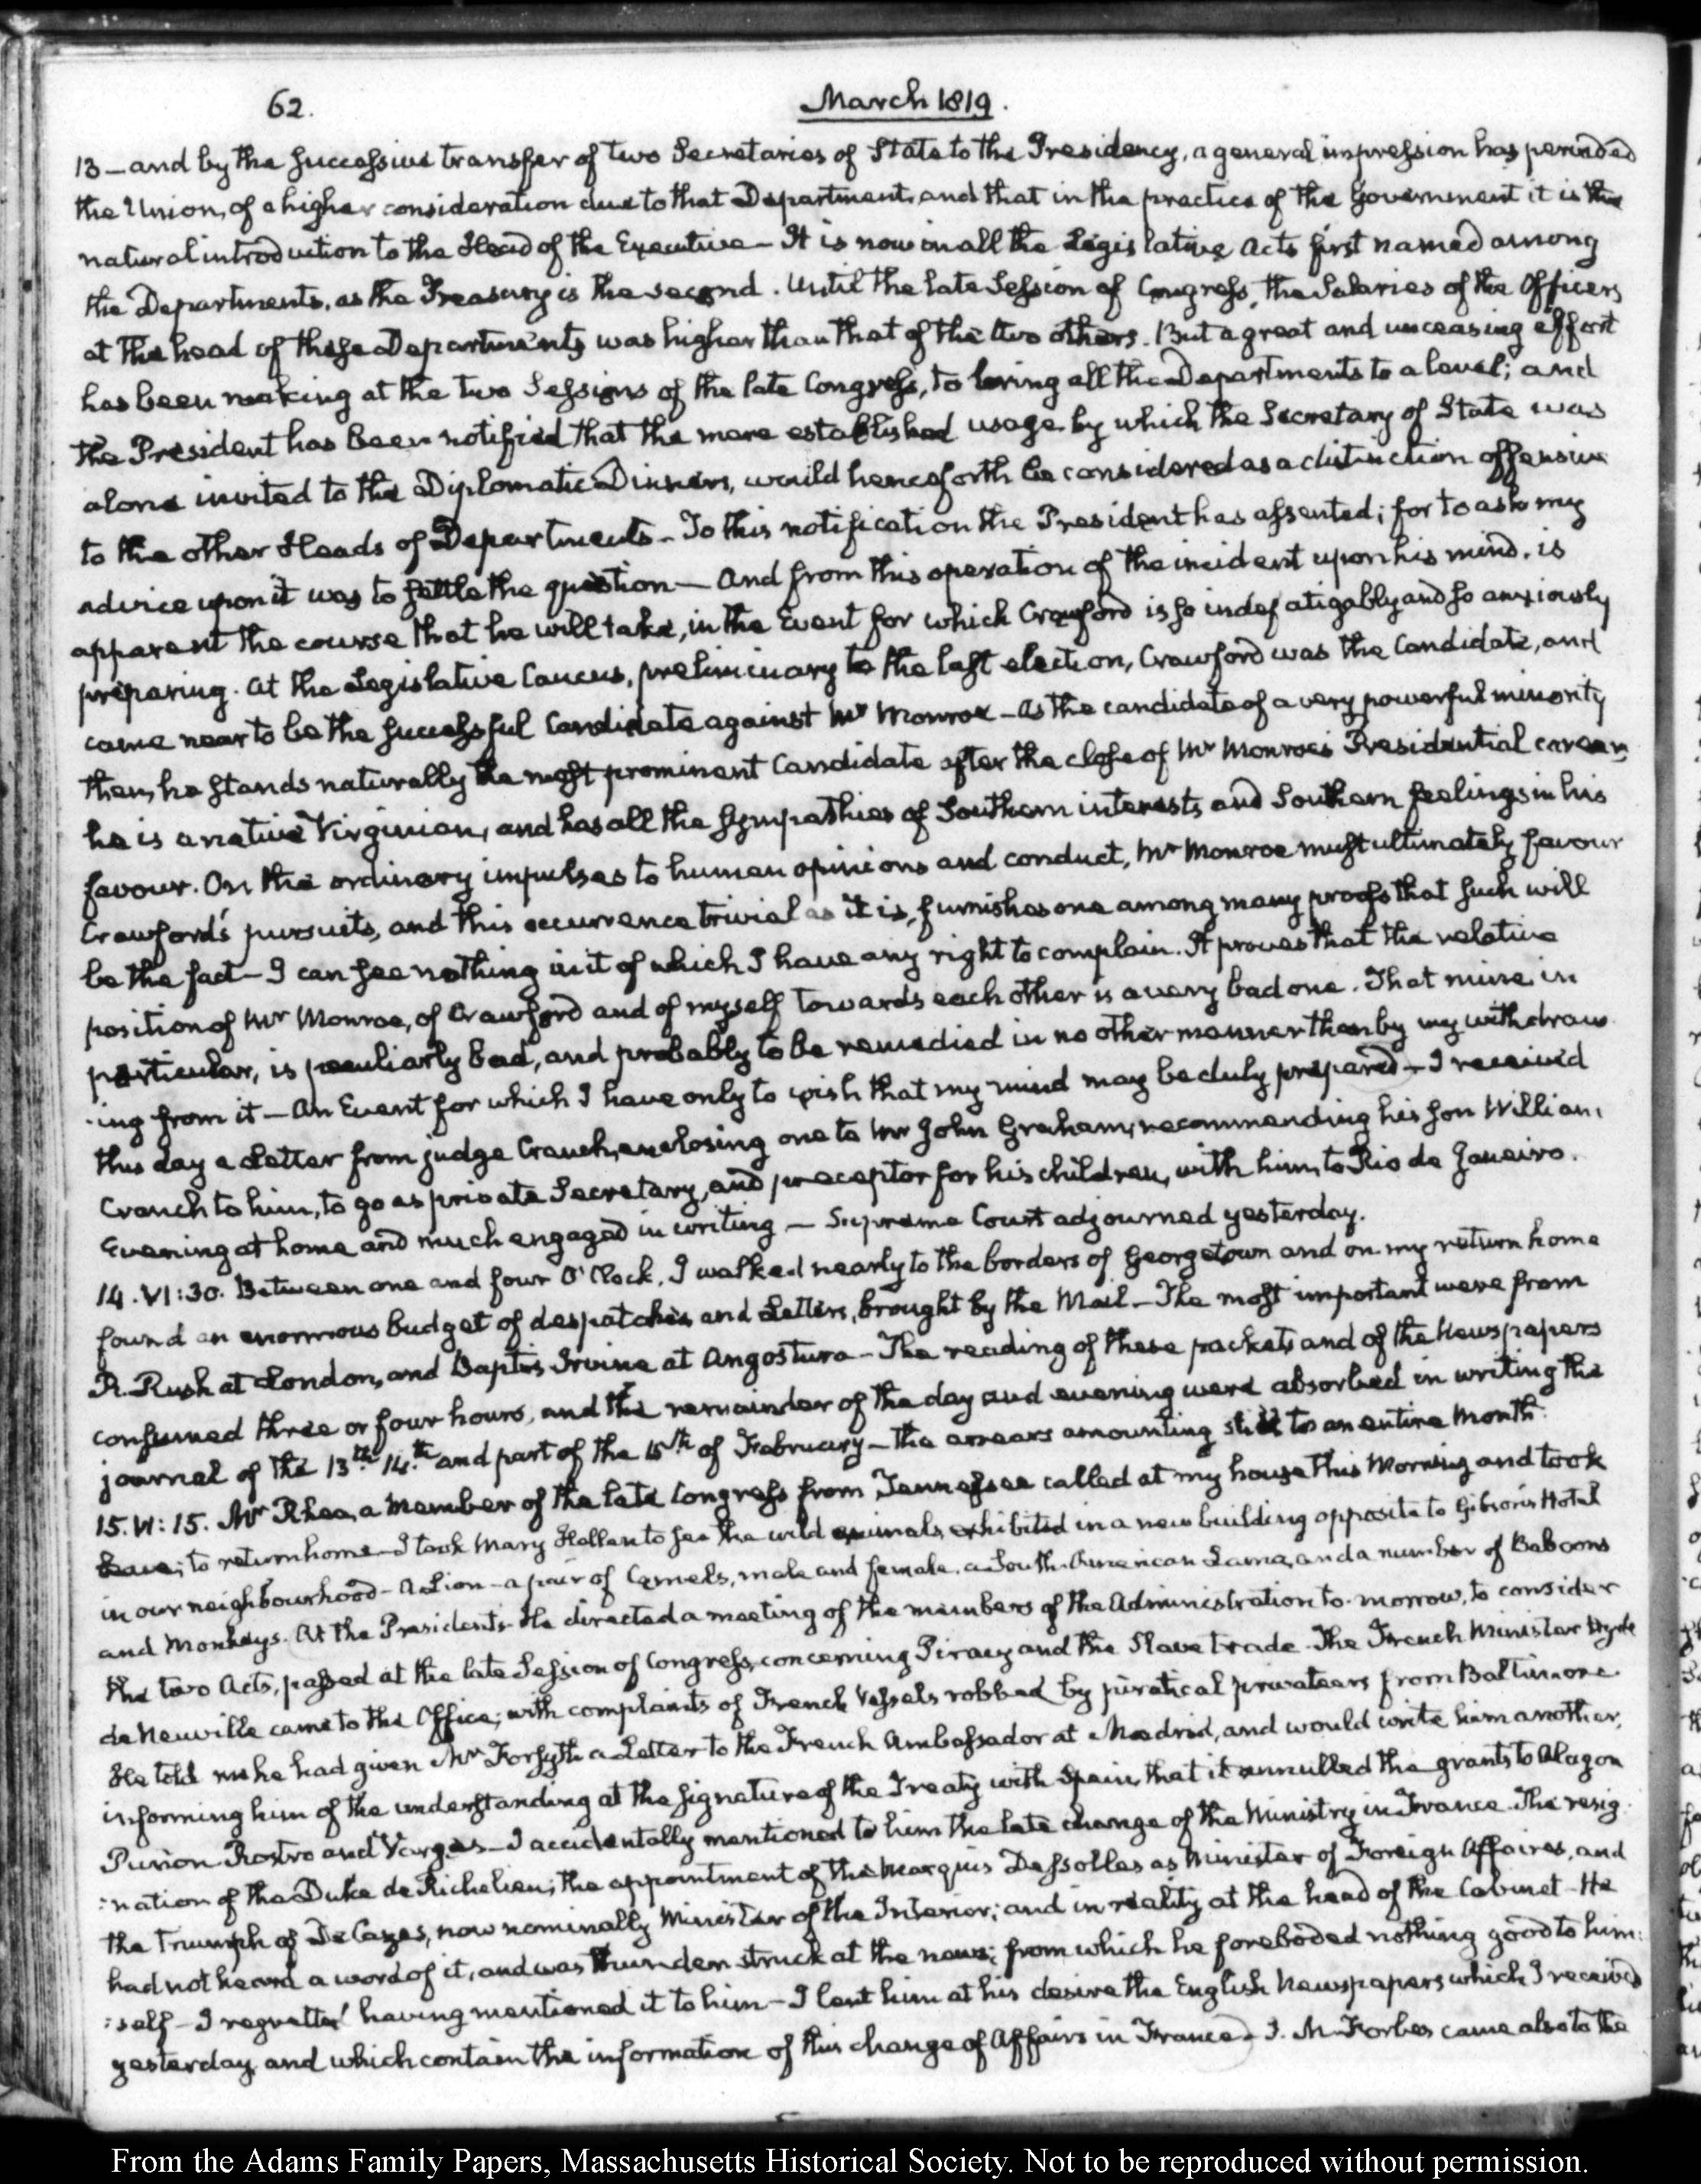 62.
March 1819.
13 — and by the successive transfer of two Secretaries of State to the Presidency, a general impression has pervaded
the Union, of a higher consideration due to that Department, and that in the practice of the Government it is the
natural introduction to the Head of the Executive — It is now in all the Legislative Acts first named among
the Departments, as the Treasury is the second. Until the late Session of Congress, the Salaries of the Officers
at the head of these Departments was higher than that of the two others. But a great and unceasing effort
has been making at the two Sessions of the late Congress, to bring all the Departments to a level; and
the President has been notified that the mere established usage by which the Secretary of State was
alone invited to the Diplomatic Dinners, would henceforth be considered as a distinction offensive
to the other Heads of Departments — To this notification the President has assented; for to ask my
advice upon it was to settle the question — And from this operation of the incident upon his mind, is
apparent the course that he will take, in the Event for which Crawford is so indefatigably and so anxiously
preparing. At the Legislative Caucus, preliminary to the last election, Crawford was the Candidate, and
came near to be the successful Candidate against Mr Monroe — As the candidate of a very powerful minority
then, he stands naturally the most prominent Candidate after the close of Mr Monroe's Presidential career,
he is a native Virginian, and has all the sympathies of Southern interests and Southern feelings in his
favour. On the ordinary impulses to human opinions and conduct, Mr Monroe must ultimately favour
Crawford's pursuits, and this occurrence trivial as it is, furnishes one among many proofs that such will
be the fact — I can see nothing in it of which I have any right to complain. It proves that the relative
position of Mr Monroe, of Crawford and of myself towards each other is a very bad one. That mine in
particular, is peculiarly bad, and probably to be remedied in no other manner than by my withdraw
-ing from it — An Event for which I have only to wish that my mind may be duly prepared — I received
this day a Letter from judge Cranch, enclosing one to Mr John Graham, recommending his son William
Cranch to him, to go as private Secretary, and preceptor for his children, with him, to Rio de Janeiro.
Evening at home and much engaged in writing — Supreme Court adjourned yesterday.
14. VI:30. Between one and four O'Clock, I walked nearly to the borders of Georgetown and on my return home
found an enormous budget of despatches and Letters, brought by the Mail — The most important were from
R. Rush at London, and Baptis Irvine at Angostura — The reading of these packets and of the Newspapers
consumed three or four hours, and the remainder of the day and evening were absorbed in writing the
journal of the 13th 14th and part of the 15th of February — the arrears amounting still to an entire Month.
15. VI:15. Mr Rhea, a member of the late Congress from Tennessee called at my house this Morning and took
leave; to return home — I took Mary Hellen to see the wild animals, exhibited in a new building opposite to Gibson's Hotel
in our neighbourhood — A Lion — a pair of Camels, male and female, a South-American Lama, and a number of Baboons
and Monkeys. At the President's. He directed a meeting of the members of the Administration to-morrow, to consider
the two Acts, passed at the late Session of Congress, concerning Piracy and the Slave trade. The French Minister Hyde
de Neuville came to the Office; with complaints of French Vessels robbed by piratical privateers from Baltimore.
He told me he had given Mr Forsyth a Letter to the French Ambassador at Madrid, and would write him another,
informing him of the understanding at the signature of the Treaty with Spain, that it annulled the grants to Alagon
Puñon Rostro and Vargas — I accidentally mentioned to him the late change of the Ministry in France. The resig
:nation of the Duke de Richelieu; the appointment of the Marquis Dessolles as Minister of Foreign Affaires, and
the triumph of De Cazes, now nominally Minister of the Interior; and in reality at the head of the Cabinet — He
had not heard a word of it, and was thunder struck at the news; from which he foreboded nothing good to him:
:self — I regretted having mentioned it to him — I lent him at his desire the English Newspapers which I received
yesterday, and which contain the information of this change of Affairs in France — J. M. Forbes came also to the
From the Adams Family Papers, Massachusetts Historical Society. Not to be reproduced without permission.